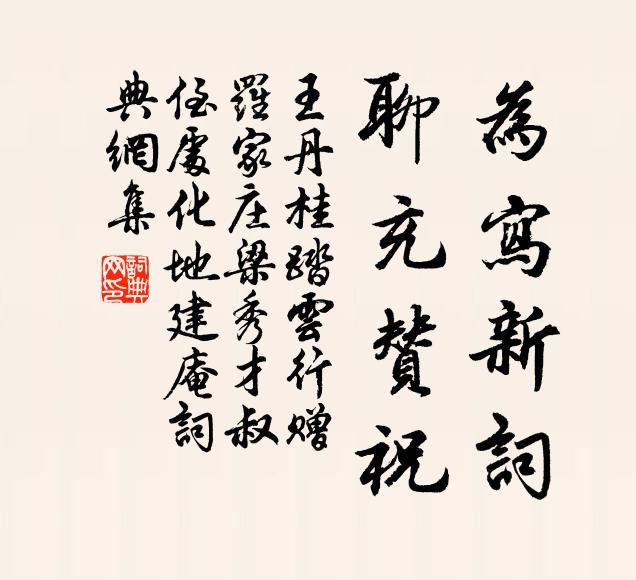 為寫新詞
聊充贊祝
王丹桂踏雲行贈
羅家庄梁秀才叔
侄處化地建庵詞
典網集
詞典
网印